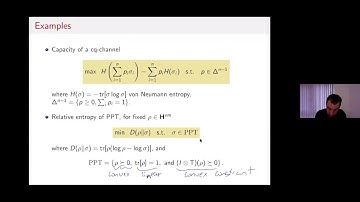 Examples
• Capacity of a cq-channel
max H(∑ⁿᵢ₌₁ pᵢσᵢ) − ∑ⁿᵢ₌₁ pᵢH(σᵢ) s.t. p ∈ Δⁿ⁻¹
where H(σ) = − tr[σ log σ] von Neumann entropy,
Δⁿ⁻¹ = {p ≥ 0, ∑ᵢ pᵢ = 1}.
• Relative entropy of PPT, for fixed ρ ∈ Hⁿᵐ
min D(ρ‖σ) s.t. σ ∈ PPT
where D(ρ‖σ) = tr[ρ(log ρ − log σ)], and
PPT = {ρ ⪰ 0, tr[ρ] = 1, and (I ⊗ T)(ρ) ⪰ 0}.
convex linear convex constraint